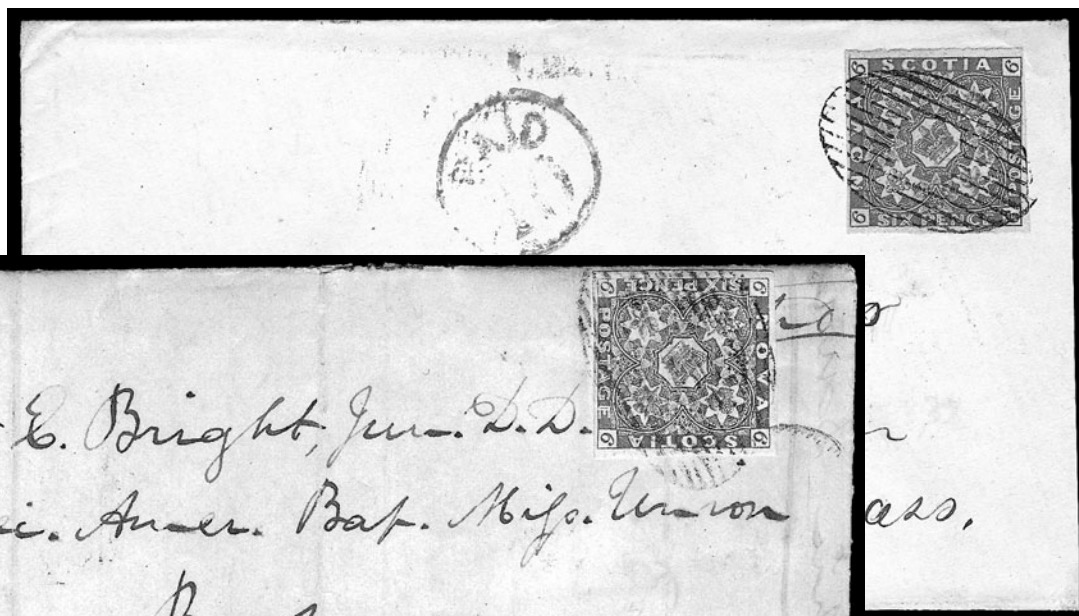 PAID
6 SCOTIA 6
NOVA
POSTAGE
6 SIX PENCE 6
6 SIX PENCE 6
POSTAGE
NOVA
6 SCOTIA 6
E. Bright, Jun. D.D.
Amer. Bap. Miſs. Union
ass.